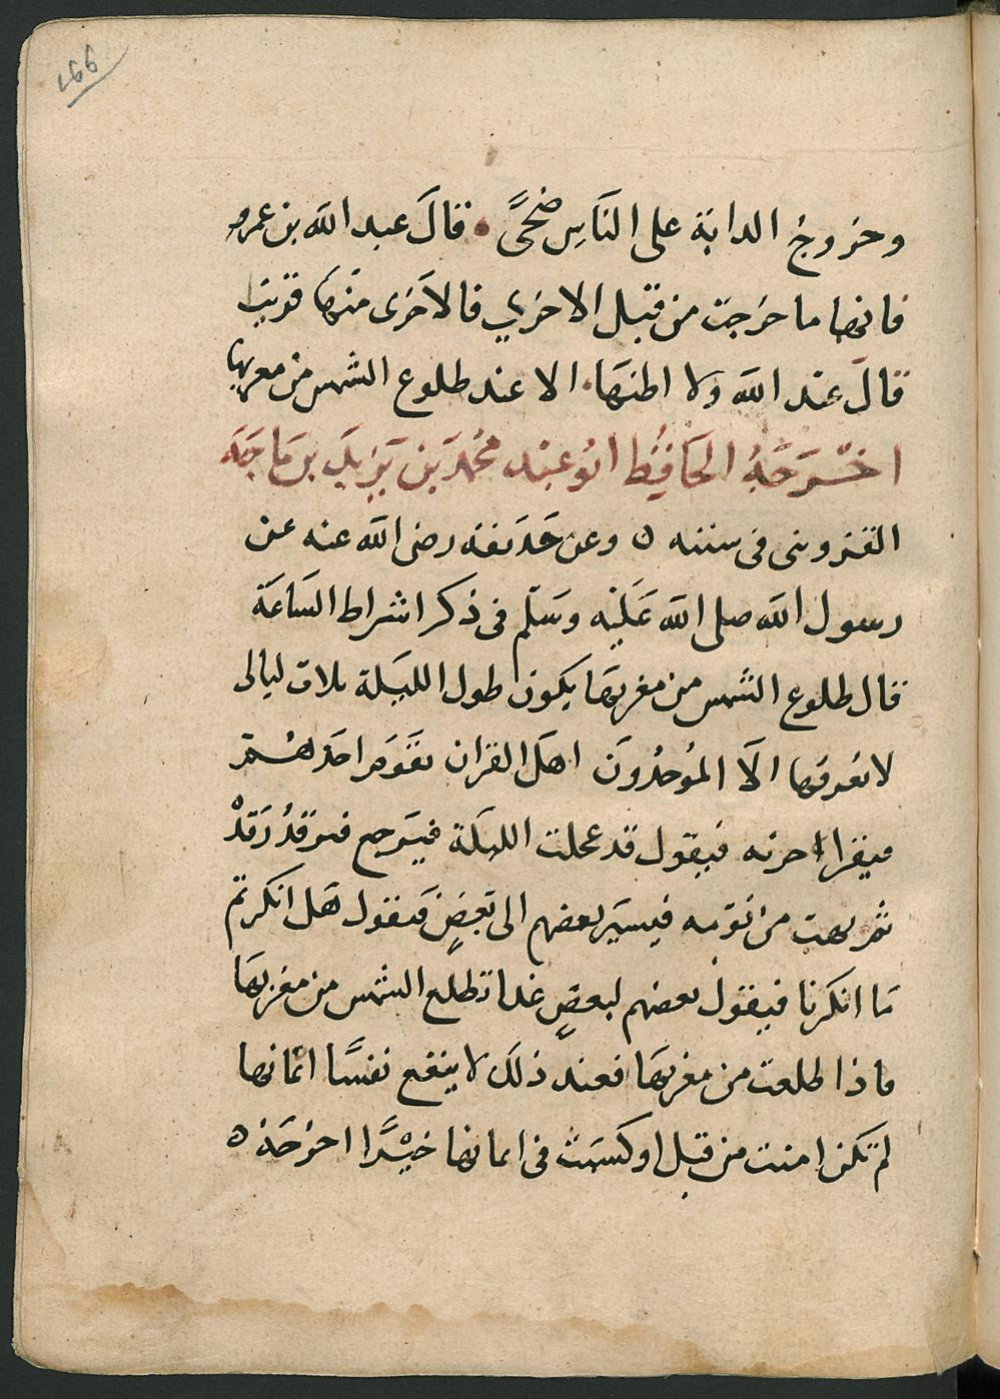 وخروج الدابة على الناس ضحًى • قال عبد الله بن عمرو
فانها ما خرجت من قبل الاخرى فالاخرى منها قريب
قال عبد الله ولا اظنها الا عند طلوع الشمس من مغربها
اخرجه الحافظ ابو عبد محمد بن يزيد بن ماجه
القزويني في سننه ٥ وعن حذيفة رضى الله عنه عن
رسول الله صلى الله عليه وسلم في ذكر اشراط الساعة
قال طلوع الشمس من مغربها يكون طول الليلة ثلاث ليالى
لا يعرفها الا الموحدون اهل القران يقوم احدهم
فيقرا حزبه فيقول قد عجلت الليلة فيرجع فيرقد رقدة
ثم يهب من نومه فيسير بعضهم الى بعض فيقول هل انكرتم
ما انكرنا فيقول بعضهم لبعض غدا تطلع الشمس من مغربها
فاذا طلعت من مغربها فعند ذلك لا ينفع نفسًا ايمانها
لم تكن امنت من قبل او كسبت في ايمانها خيرًا اخرجه ٥